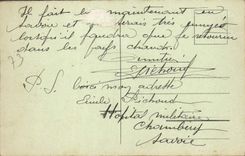 Il fait bon maintenant en
savoie et je serais très
lorsqu'il faudra que je retourne
dans les pays chauds
73
P.S. Voici mon adresse
Emile
Hopital militaire
Chambéry
Savoie